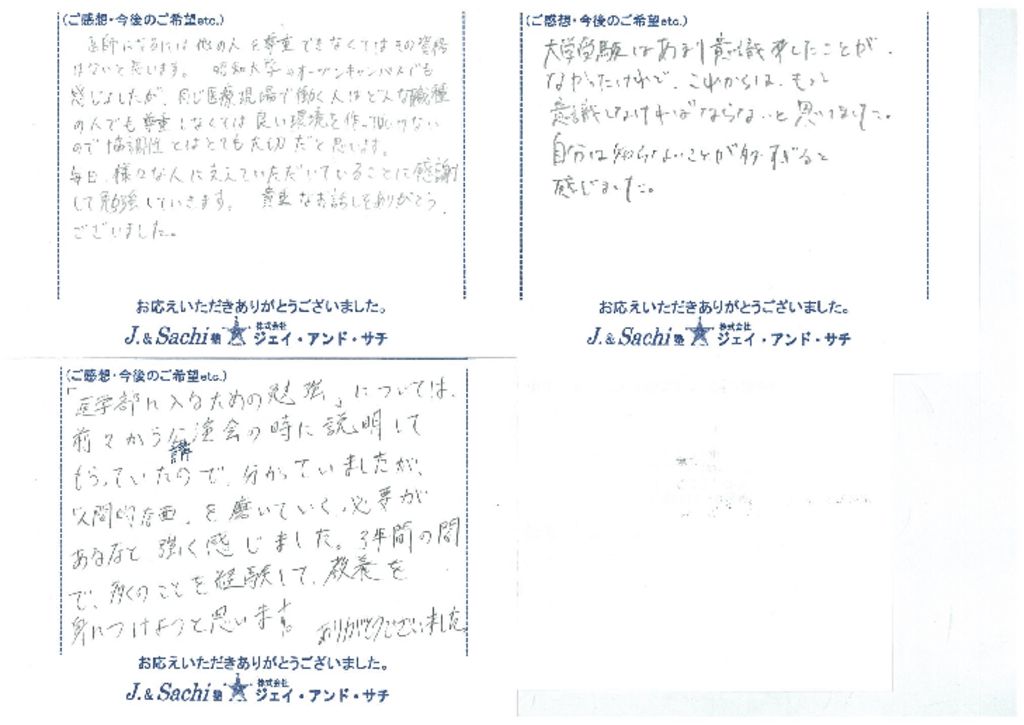 (ご感想・今後のご希望etc.)
医師になるには他の人を尊重できなくてはその資格
はないと思います。 昭和大学のオープンキャンパスでも
感じましたが、同じ医療現場で働く人はどんな職種
の人でも尊重しなくては良い環境を作っていけない
ので協調性とはとても大切だと思います。
毎日、様々な人に支えていただいていることに感謝
して勉強していきます。 貴重なお話しをありがとう
ございました。
お応えいただきありがとうございました。
J.&Sachi塾 株式会社 ジェイ・アンド・サチ
(ご感想・今後のご希望etc.)
大学受験はあまり意識をしたことが
なかったけれど、これからは、もっと
意識しなければならないと思いました。
自分は知らないことが多すぎると
感じました。
お応えいただきありがとうございました。
J.&Sachi塾 株式会社 ジェイ・アンド・サチ
(ご感想・今後のご希望etc.)
「医学部に入るための勉強」については、
前々から講演会の時に説明して
もらっていたので、分かっていましたが、
人間的な面、を磨いていく必要が
あるなと強く感じました。3年間の間
で、多くのことを経験して、教養を
身につけようと思います。 ありがとうございました。
お応えいただきありがとうございました。
J.&Sachi塾 株式会社 ジェイ・アンド・サチ